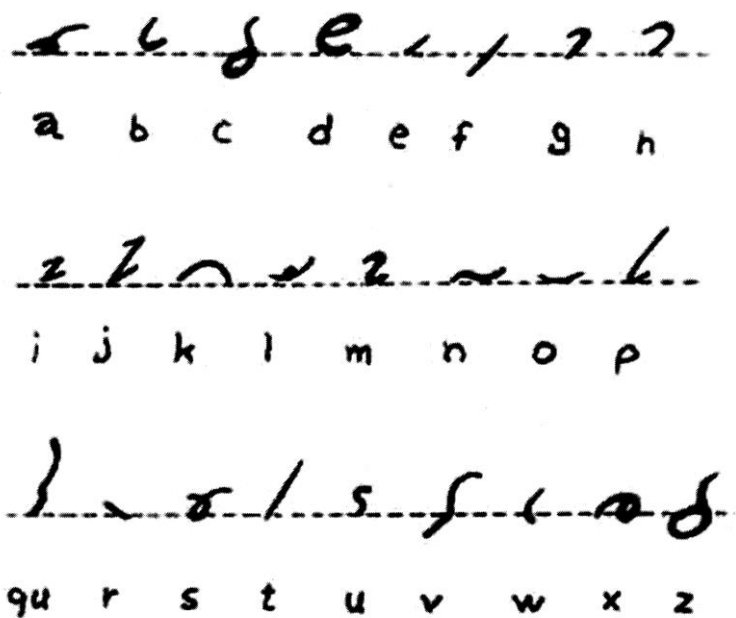 a b c d e f g h
i j k l m n o p
qu r s t u v w x z